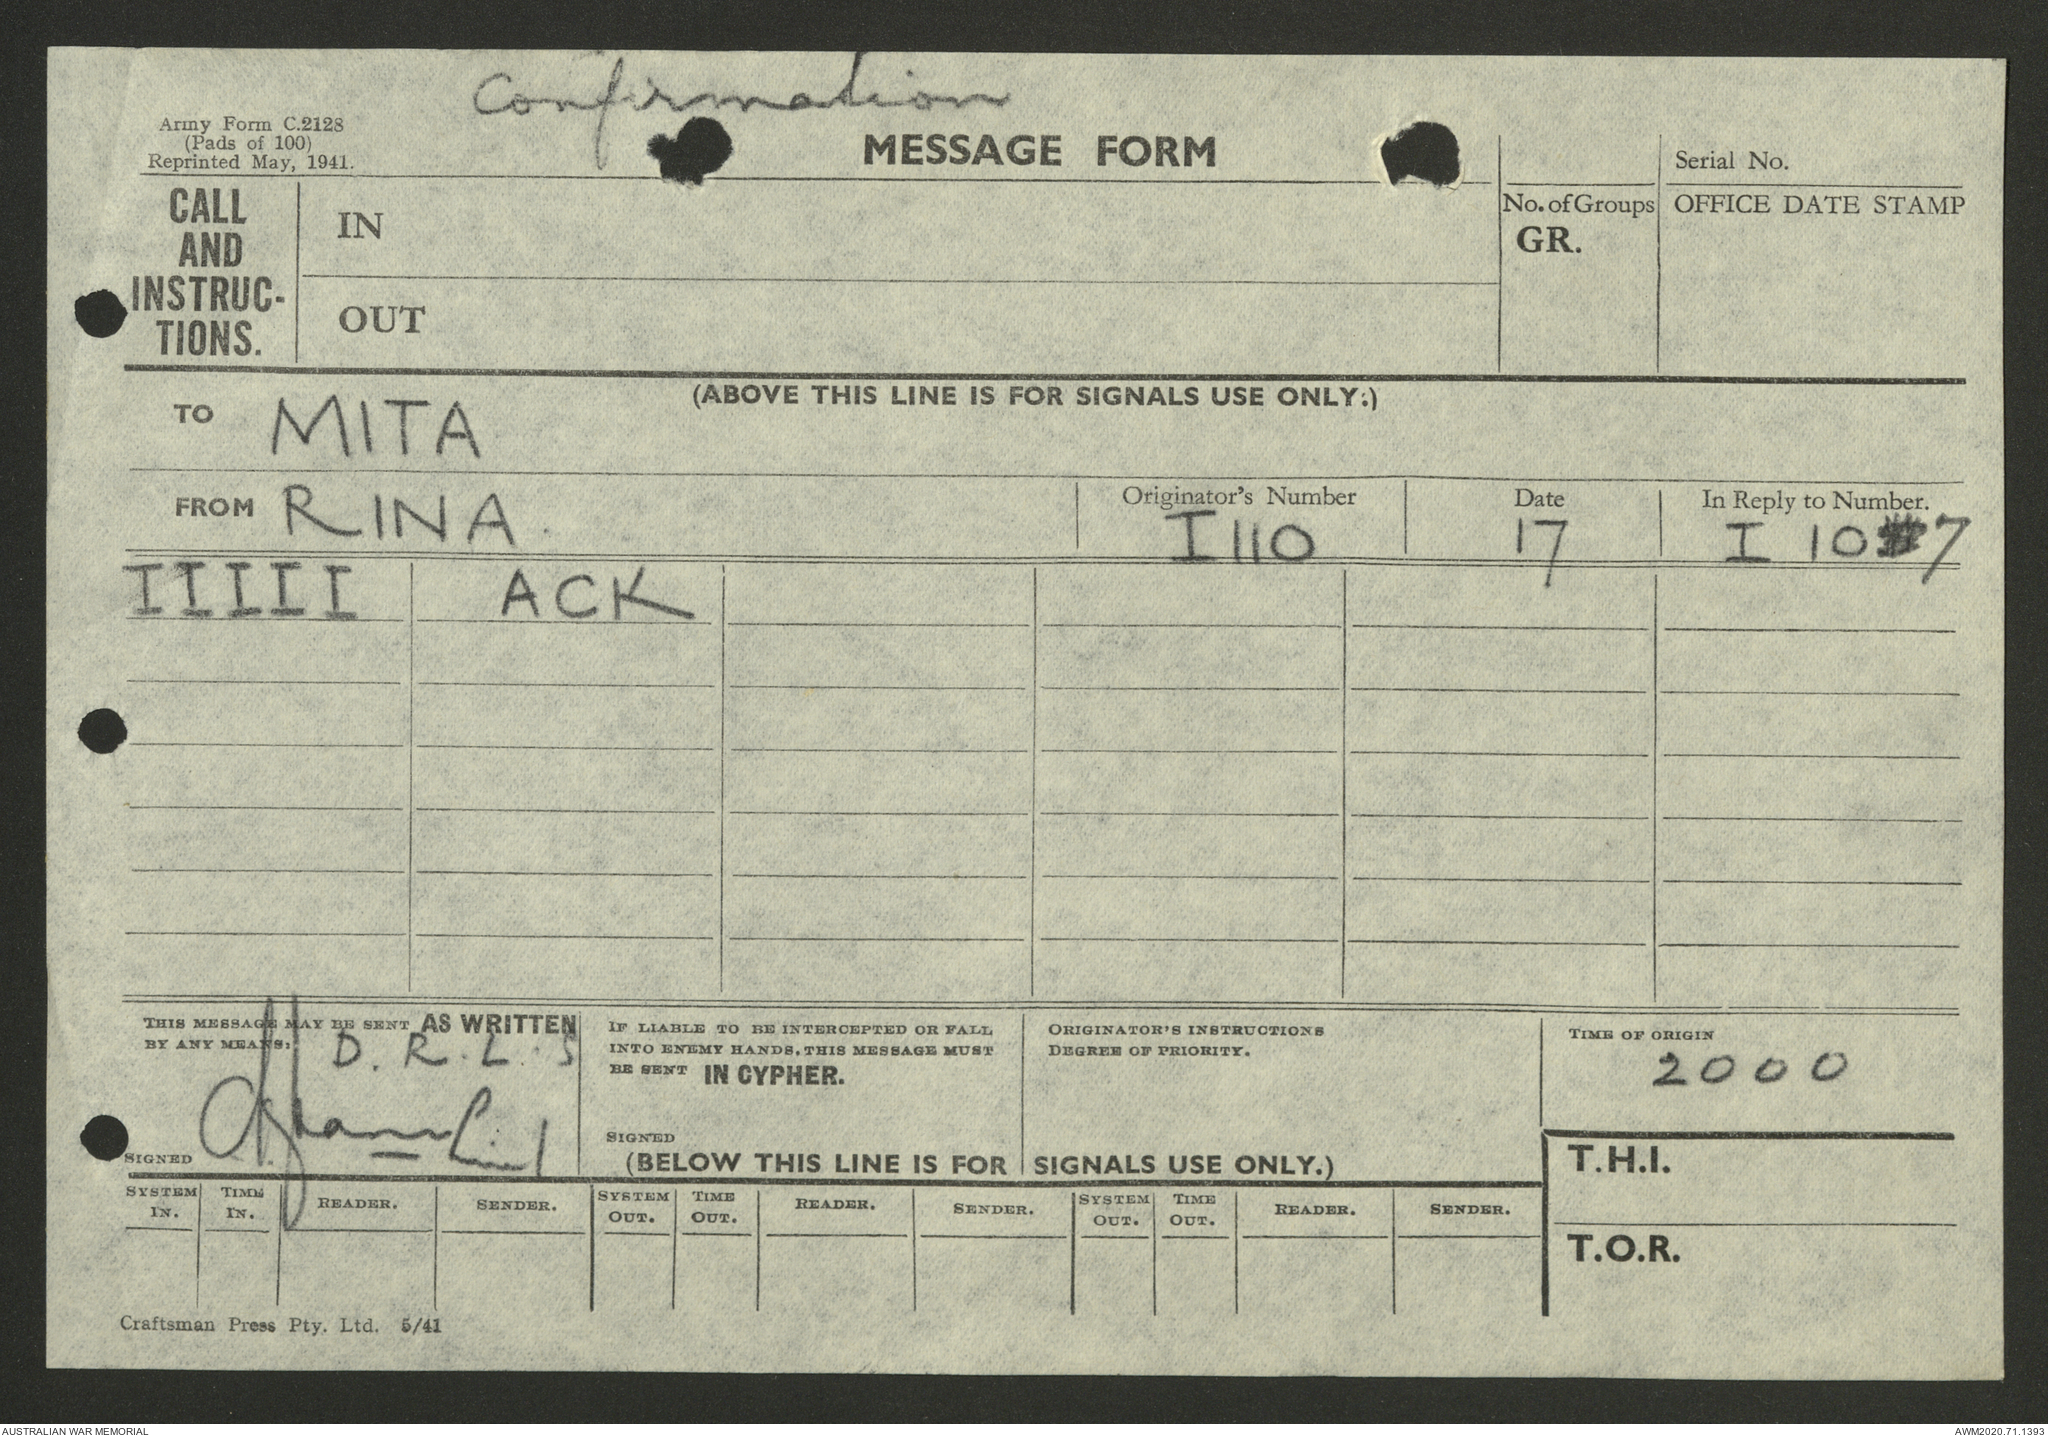 Confirmation
Army Form C.2128
(Pads of 100)
Reprinted May, 1941.
MESSAGE FORM
Serial No.
CALL
AND
INSTRUC-
TIONS.
IN
OUT
No. of Groups
GR.
OFFICE DATE STAMP
(ABOVE THIS LINE IS FOR SIGNALS USE ONLY.)
TO MITA
FROM RINA.
Originator's Number
I 110
Date
17
In Reply to Number.
I 10 7
IIIII ACK
THIS MESSAGE MAY BE SENT AS WRITTEN
BY ANY MEANS:
D. R. L. S
SIGNED
IF LIABLE TO BE INTERCEPTED OR FALL
INTO ENEMY HANDS, THIS MESSAGE MUST
BE SENT IN CYPHER.
SIGNED
ORIGINATOR'S INSTRUCTIONS
DEGREE OF PRIORITY.
TIME OF ORIGIN
2000
(BELOW THIS LINE IS FOR SIGNALS USE ONLY.)
T.H.I.
T.O.R.
SYSTEM IN. TIME IN. READER. SENDER. SYSTEM OUT. TIME OUT. READER. SENDER. SYSTEM OUT. TIME OUT. READER. SENDER.
Craftsman Press Pty. Ltd. 5/41
AUSTRALIAN WAR MEMORIAL
AWM2020.71.1393